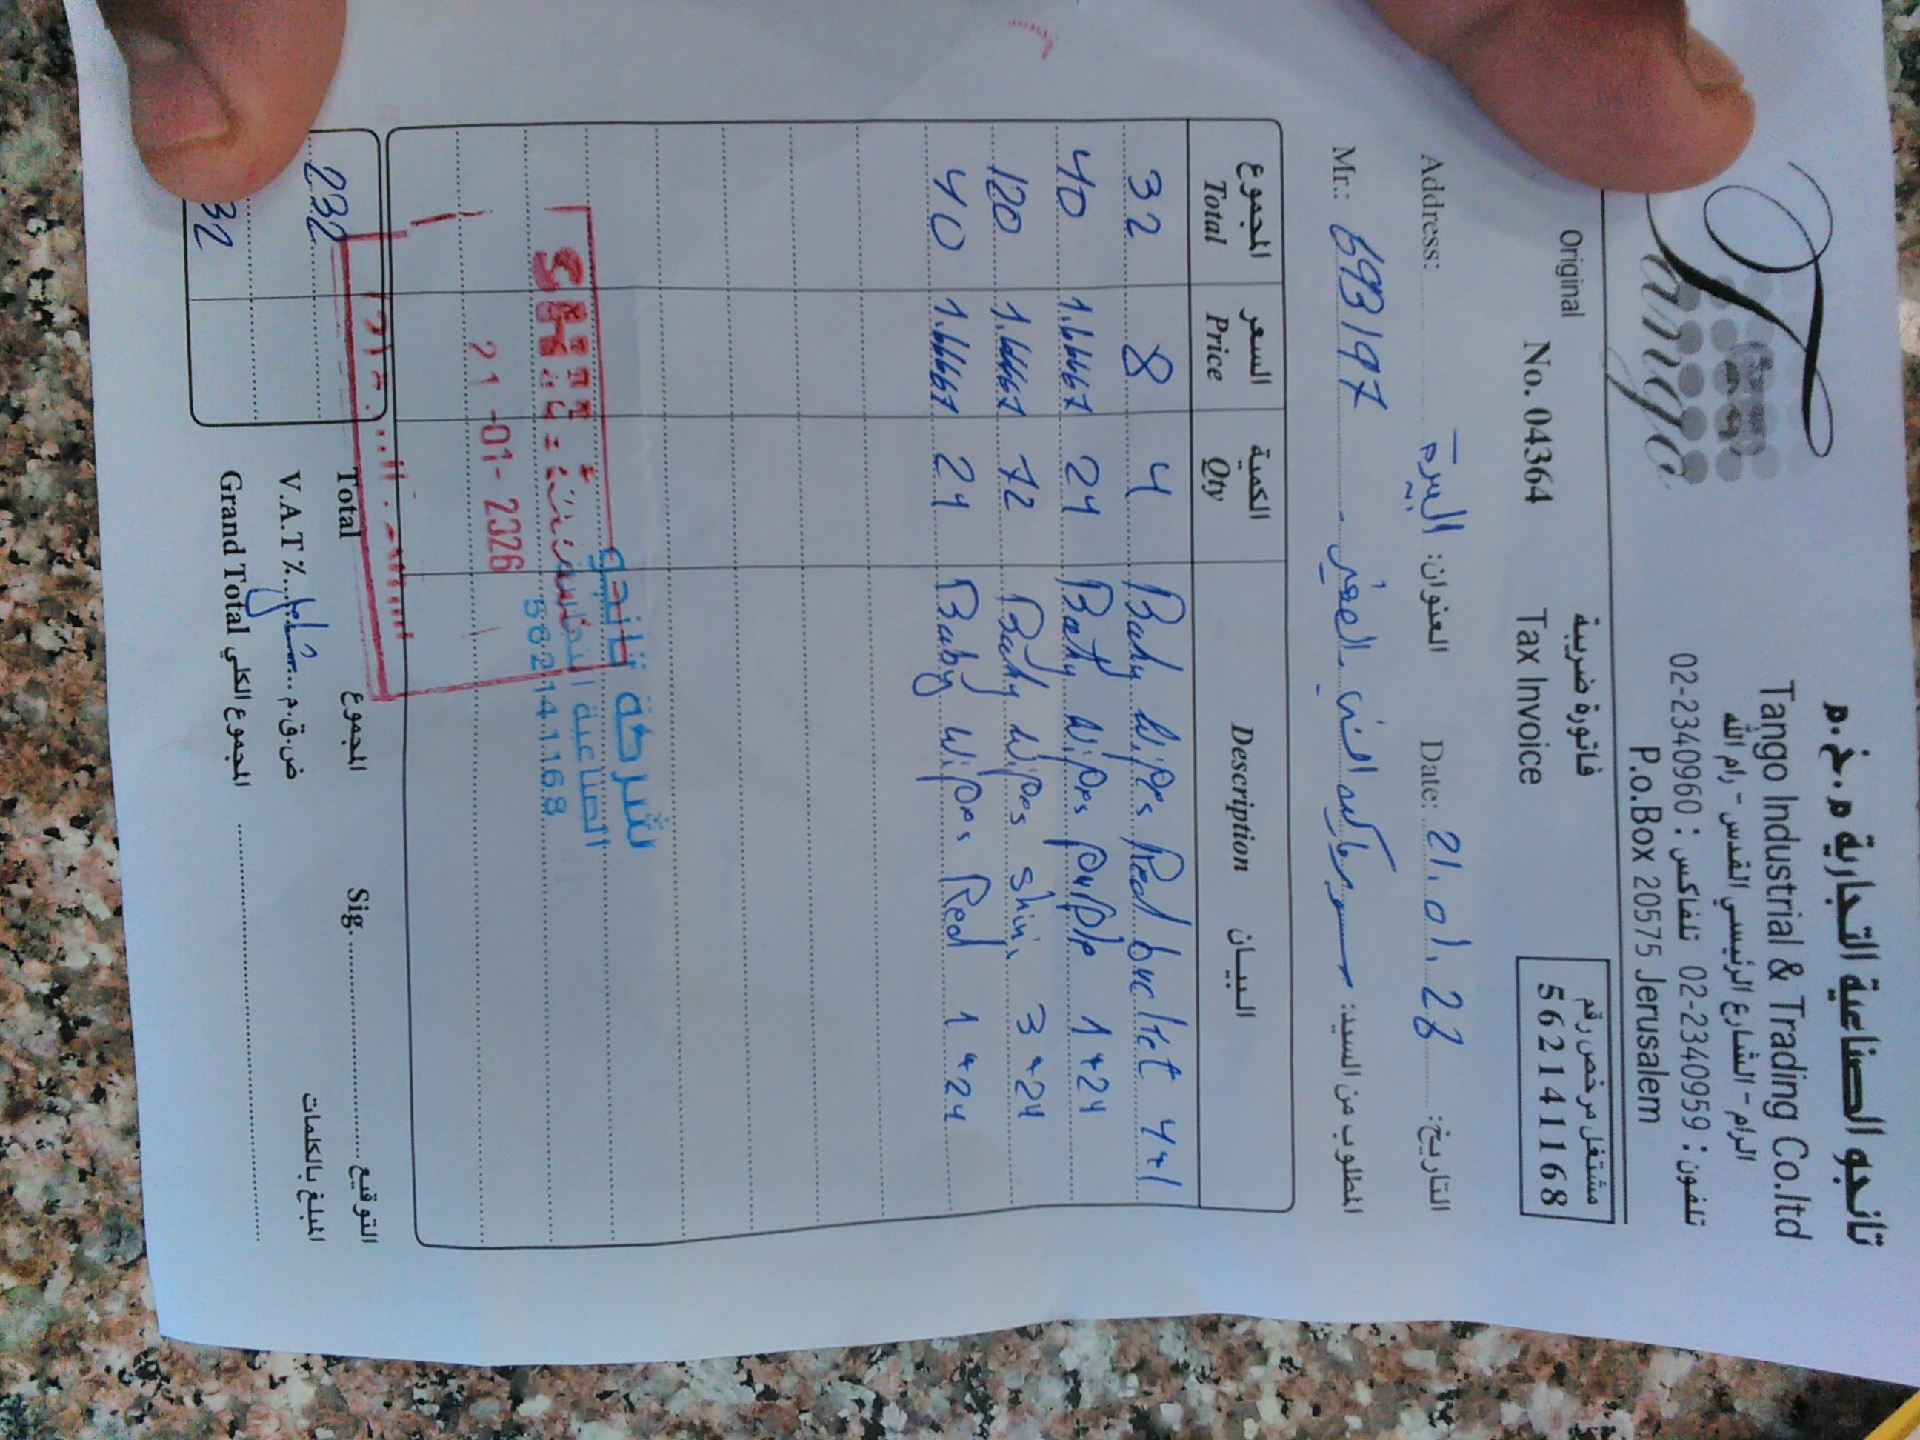 تانجو الصناعية التجارية م.خ.م
Tango Industrial & Trading Co.ltd
الرام - الشارع الرئيسي القدس - رام الله
تلفون : 02-2340959 تلفاكس : 02-2340960
P.o.Box 20575 Jerusalem
Tango
تانجو
Original
No. 04364
فاتورة ضريبية
Tax Invoice
مشتغل مرخص رقم
562141168
Address: البيره العنوان: Date: 21.01. التاريخ:
Mr.: 693197 سوبرماركت المطلوب من السيد:
المجموع السعر الكمية البيـــان
Total Price Qty Description
32 8 4 Baby Wipes Red bucket 4*1
40 1.66667 24 Baby Wipes purple 1*24
120 1.66667 72 Baby Wipes shini 3*24
40 1.66667 24 Baby Wipes Red 1*24
شركة تانجو
الصناعية التجارية
562141168
21-01-2026
232 Total المجموع Sig. التوقيع
V.A.T %. شامل ض.ق.م المبلغ بالكلمات
32 Grand Total المجموع الكلي